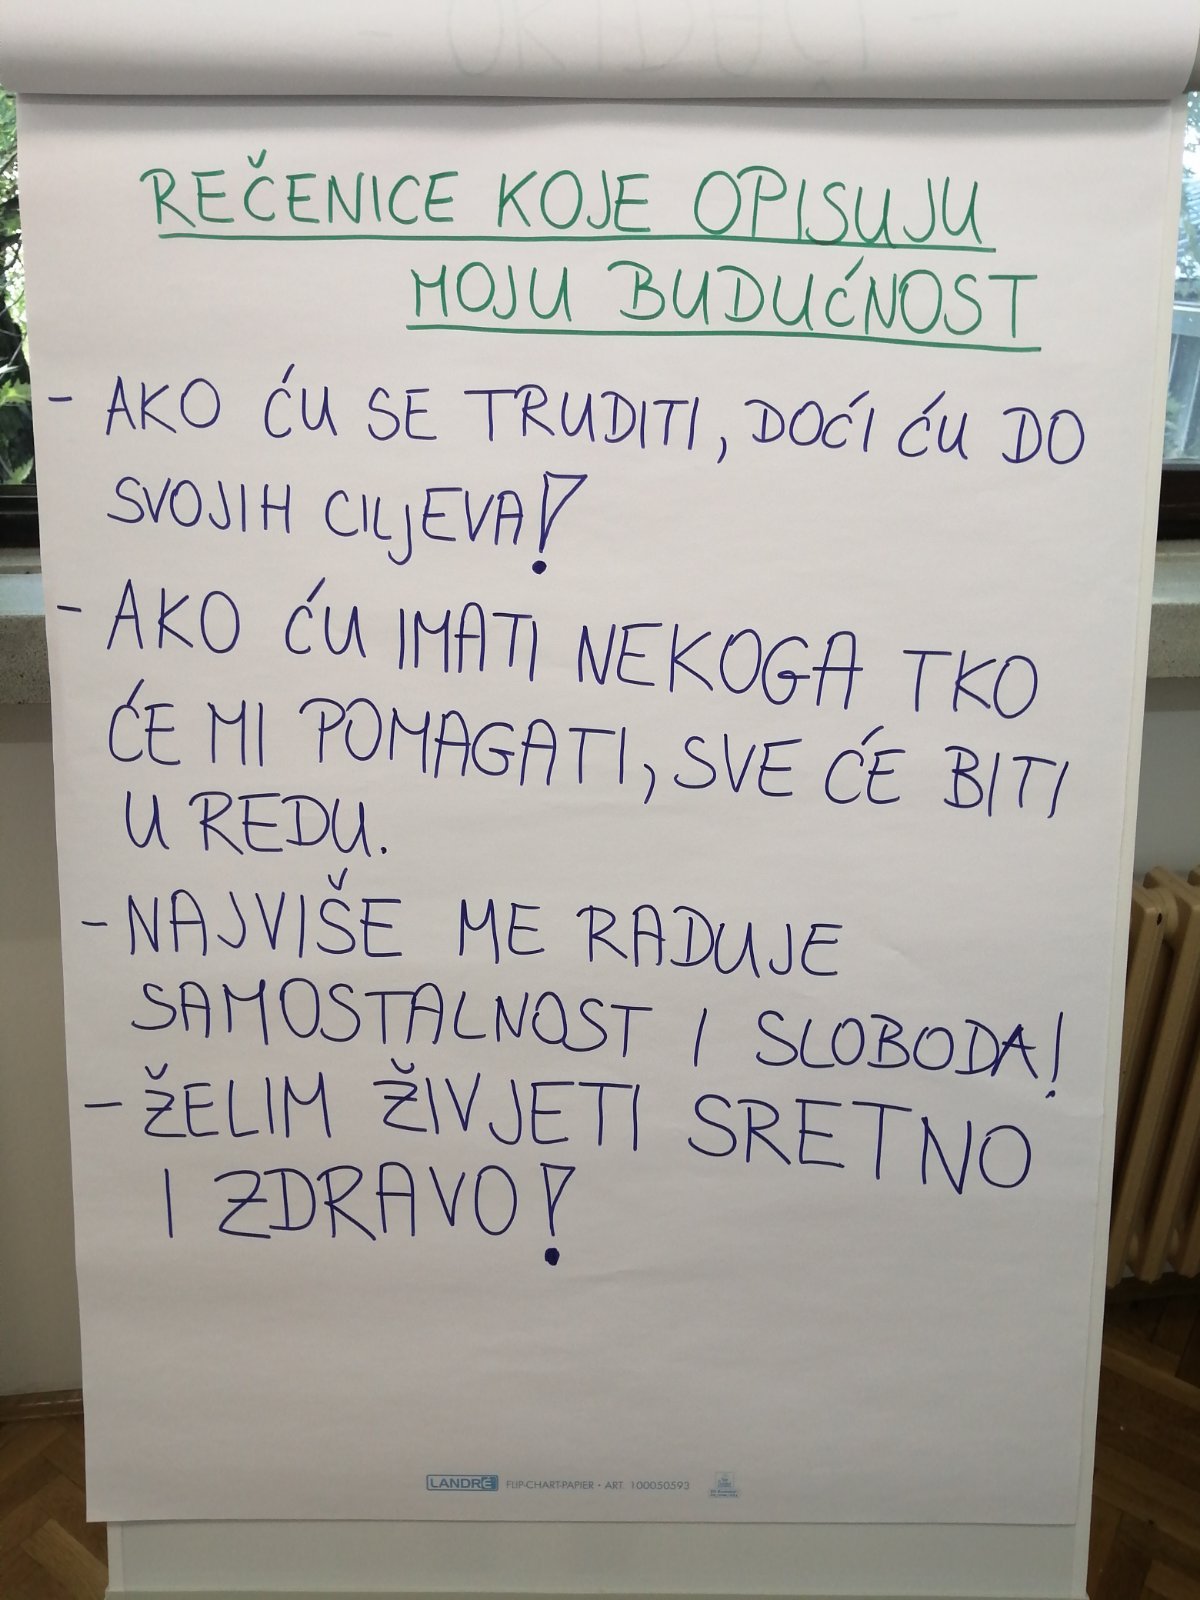 REČENICE KOJE OPISUJU
MOJU BUDUĆNOST
- AKO ĆU SE TRUDITI, DOĆI ĆU DO
SVOJIH CILJEVA!
- AKO ĆU IMATI NEKOGA TKO
ĆE MI POMAGATI, SVE ĆE BITI
U REDU.
- NAJVIŠE ME RADUJE
SAMOSTALNOST I SLOBODA!
- ŽELIM ŽIVJETI SRETNO
I ZDRAVO!
LANDRÉ FLIP-CHART-PAPIER · ART. 100050593